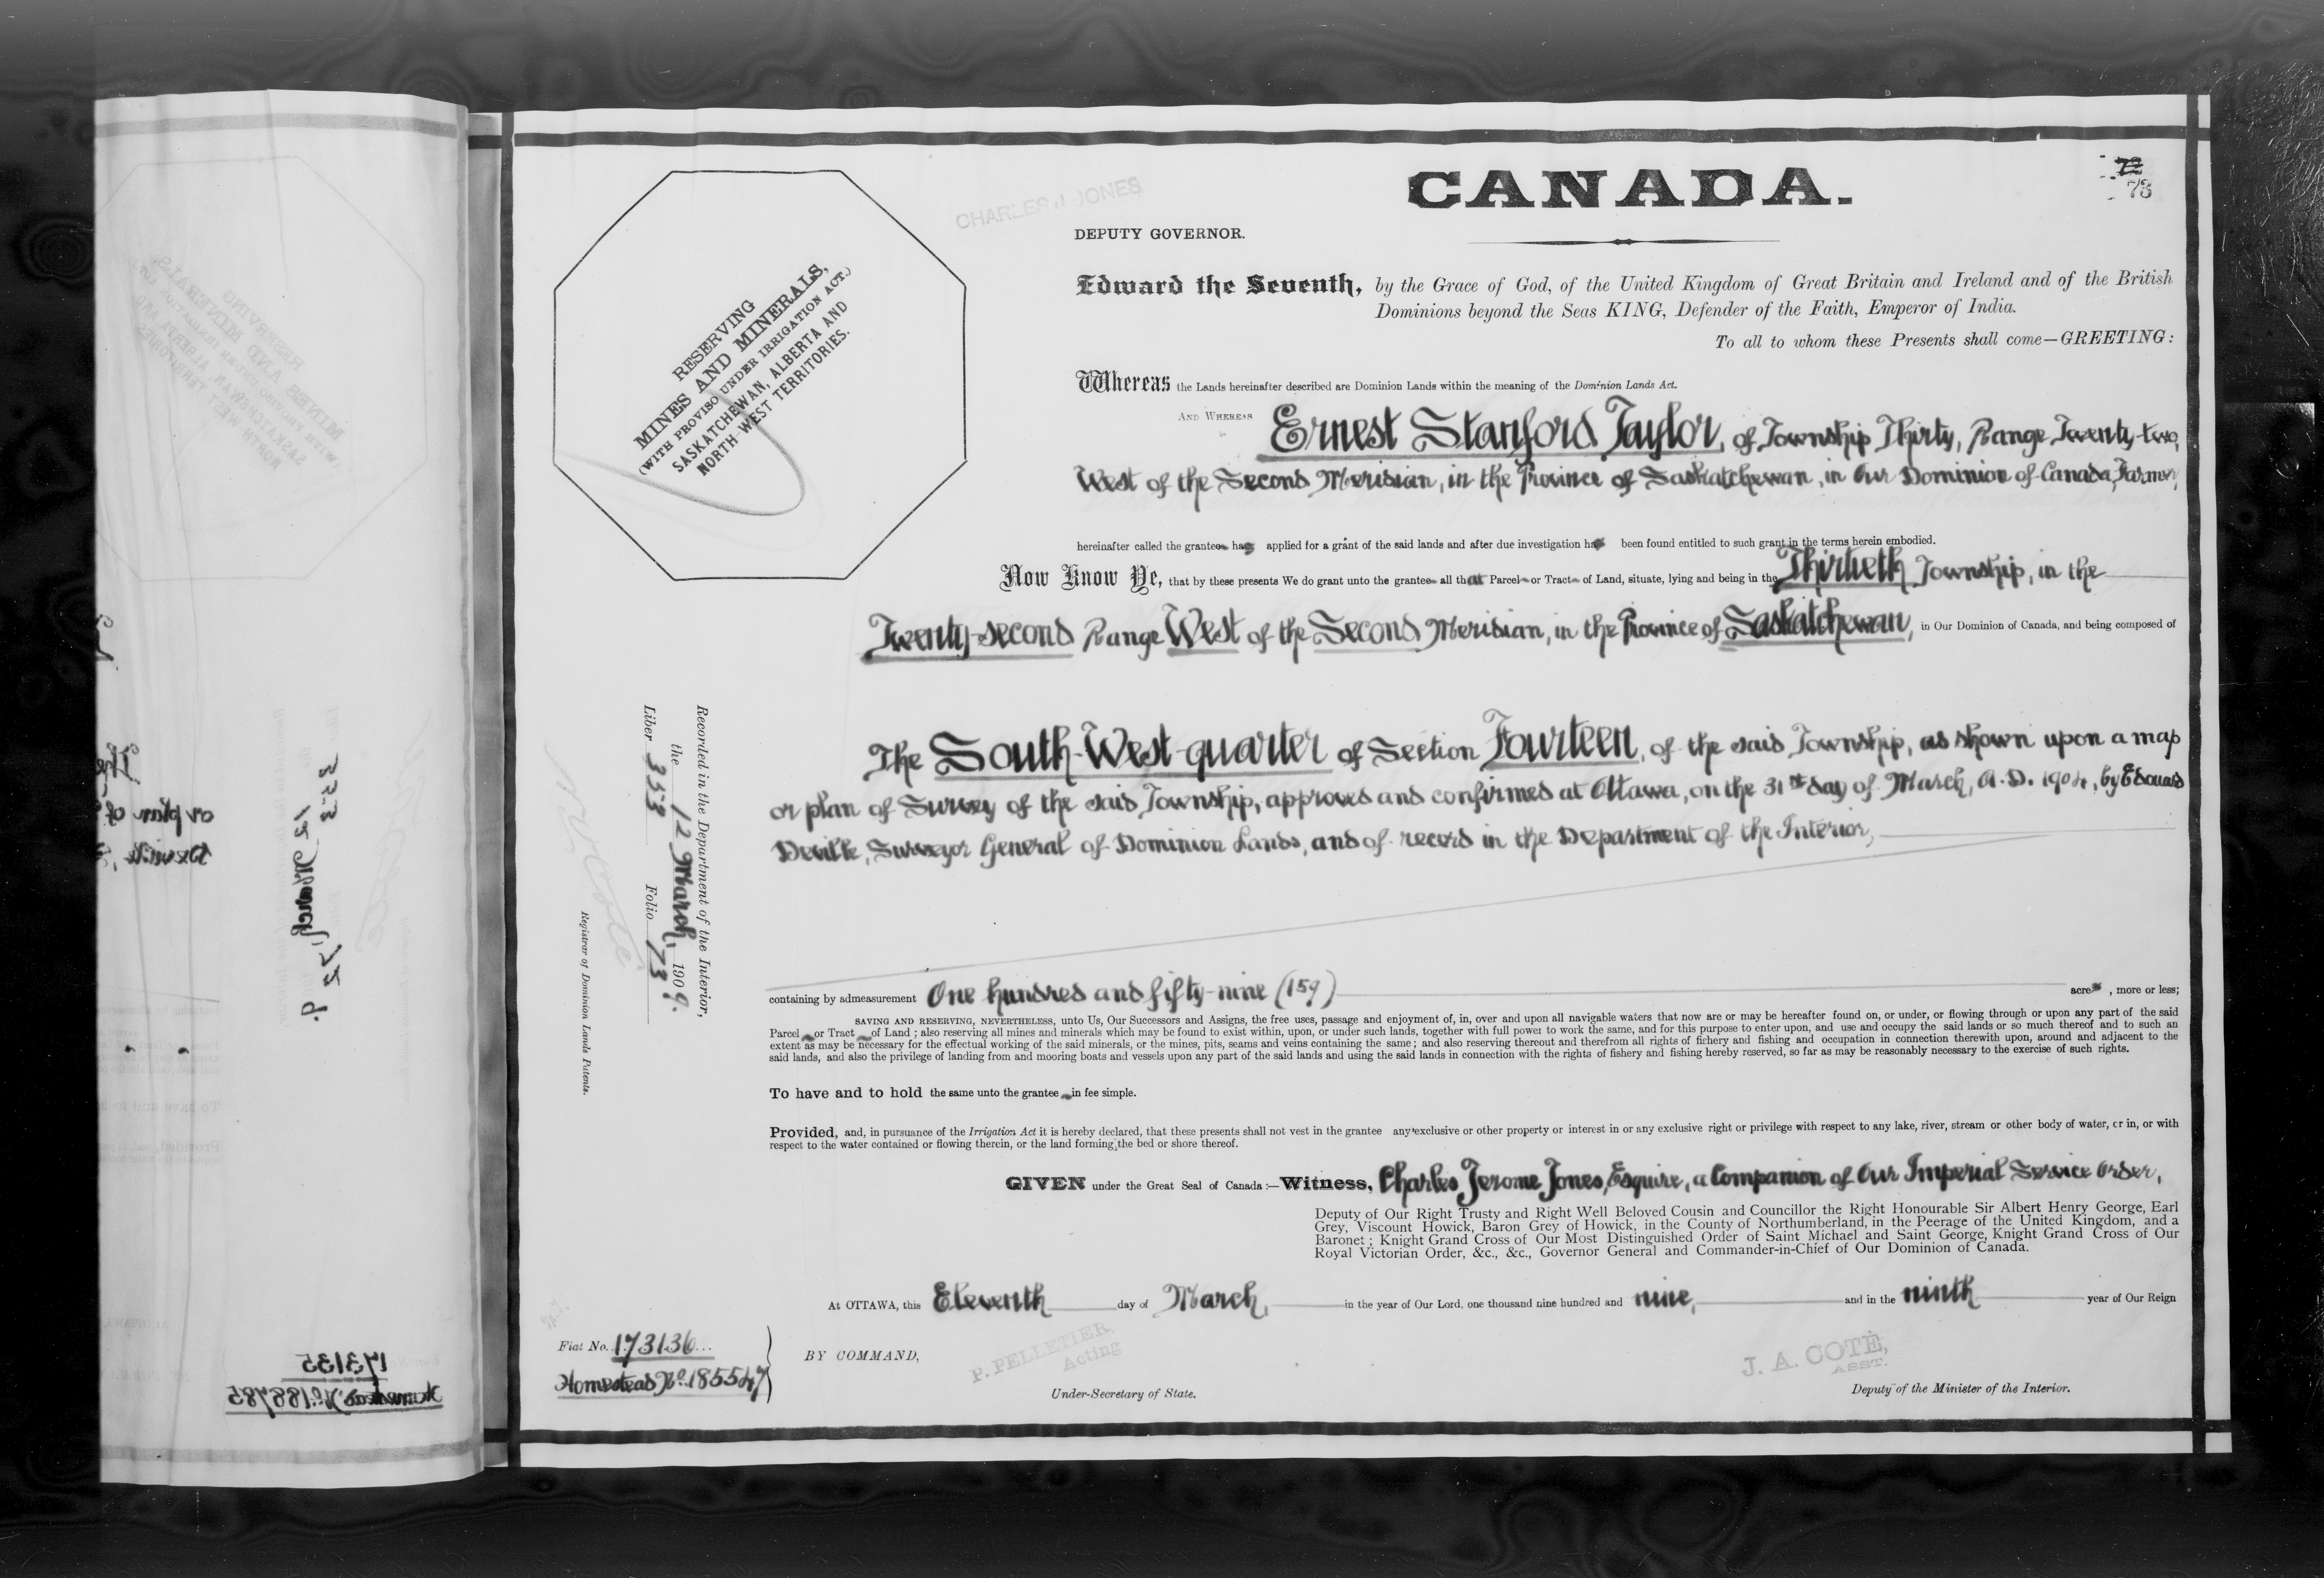 CANADA.
72
73
CHARLES J. JONES
DEPUTY GOVERNOR.
RESERVING
MINES AND MINERALS,
(WITH PROVISO UNDER IRRIGATION ACT.)
SASKATCHEWAN, ALBERTA AND
NORTH-WEST TERRITORIES.
Edward the Seventh, by the Grace of God, of the United Kingdom of Great Britain and Ireland and of the British
Dominions beyond the Seas KING, Defender of the Faith, Emperor of India.
To all to whom these Presents shall come—GREETING:
Whereas the Lands hereinafter described are Dominion Lands within the meaning of the Dominion Lands Act.
AND WHEREAS Ernest Stanford Taylor, of Township Thirty, Range Twenty-two,
West of the Second Meridian, in the Province of Saskatchewan, in Our Dominion of Canada, Farmer,
hereinafter called the grantee has applied for a grant of the said lands and after due investigation has been found entitled to such grant in the terms herein embodied.
Now Know Ye, that by these presents We do grant unto the grantee all that Parcel or Tract of Land, situate, lying and being in the Thirtieth Township, in the
Twenty-second Range West of the Second Meridian, in the Province of Saskatchewan, in Our Dominion of Canada, and being composed of
The South-West-quarter of Section Fourteen, of the said Township, as shown upon a map
or plan of Survey of the said Township, approved and confirmed at Ottawa, on the 31st day of March, A.D. 1904, by Edouard
Deville, Surveyor General of Dominion Lands, and of record in the Department of the Interior,
Recorded in the Department of the Interior,
the 12 March, 1909.
Liber 353 Folio 73
Registrar of Dominion Lands Patents.
containing by admeasurement One hundred and fifty-nine (159) acres, more or less;
SAVING AND RESERVING, NEVERTHELESS, unto Us, Our Successors and Assigns, the free uses, passage and enjoyment of, in, over and upon all navigable waters that now are or may be hereafter found on, or under, or flowing through or upon any part of the said
Parcel or Tract of Land; also reserving all mines and minerals which may be found to exist within, upon, or under such lands, together with full power to work the same, and for this purpose to enter upon, and use and occupy the said lands or so much thereof and to such an
extent as may be necessary for the effectual working of the said minerals, or the mines, pits, seams and veins containing the same; and also reserving thereout and therefrom all rights of fichery and fishing and occupation in connection therewith upon, around and adjacent to the
said lands, and also the privilege of landing from and mooring boats and vessels upon any part of the said lands and using the said lands in connection with the rights of fishery and fishing hereby reserved, so far as may be reasonably necessary to the exercise of such rights.
To have and to hold the same unto the grantee in fee simple.
Provided, and, in pursuance of the Irrigation Act it is hereby declared, that these presents shall not vest in the grantee any exclusive or other property or interest in or any exclusive right or privilege with respect to any lake, river, stream or other body of water, or in, or with
respect to the water contained or flowing therein, or the land forming the bed or shore thereof.
GIVEN under the Great Seal of Canada:—Witness, Charles Jerome Jones, Esquire, a Companion of Our Imperial Service Order,
Deputy of Our Right Trusty and Right Well Beloved Cousin and Councillor the Right Honourable Sir Albert Henry George, Earl
Grey, Viscount Howick, Baron Grey of Howick, in the County of Northumberland, in the Peerage of the United Kingdom, and a
Baronet; Knight Grand Cross of Our Most Distinguished Order of Saint Michael and Saint George, Knight Grand Cross of Our
Royal Victorian Order, &c., &c., Governor General and Commander-in-Chief of Our Dominion of Canada.
At OTTAWA, this Eleventh day of March, in the year of Our Lord, one thousand nine hundred and nine, and in the ninth year of Our Reign
Fiat No. 173136
Homestead No. 185547
BY COMMAND,
P. PELLETIER,
Acting
Under-Secretary of State.
J. A. COTÉ,
ASST.
Deputy of the Minister of the Interior.
173135
Homestead No. 188785